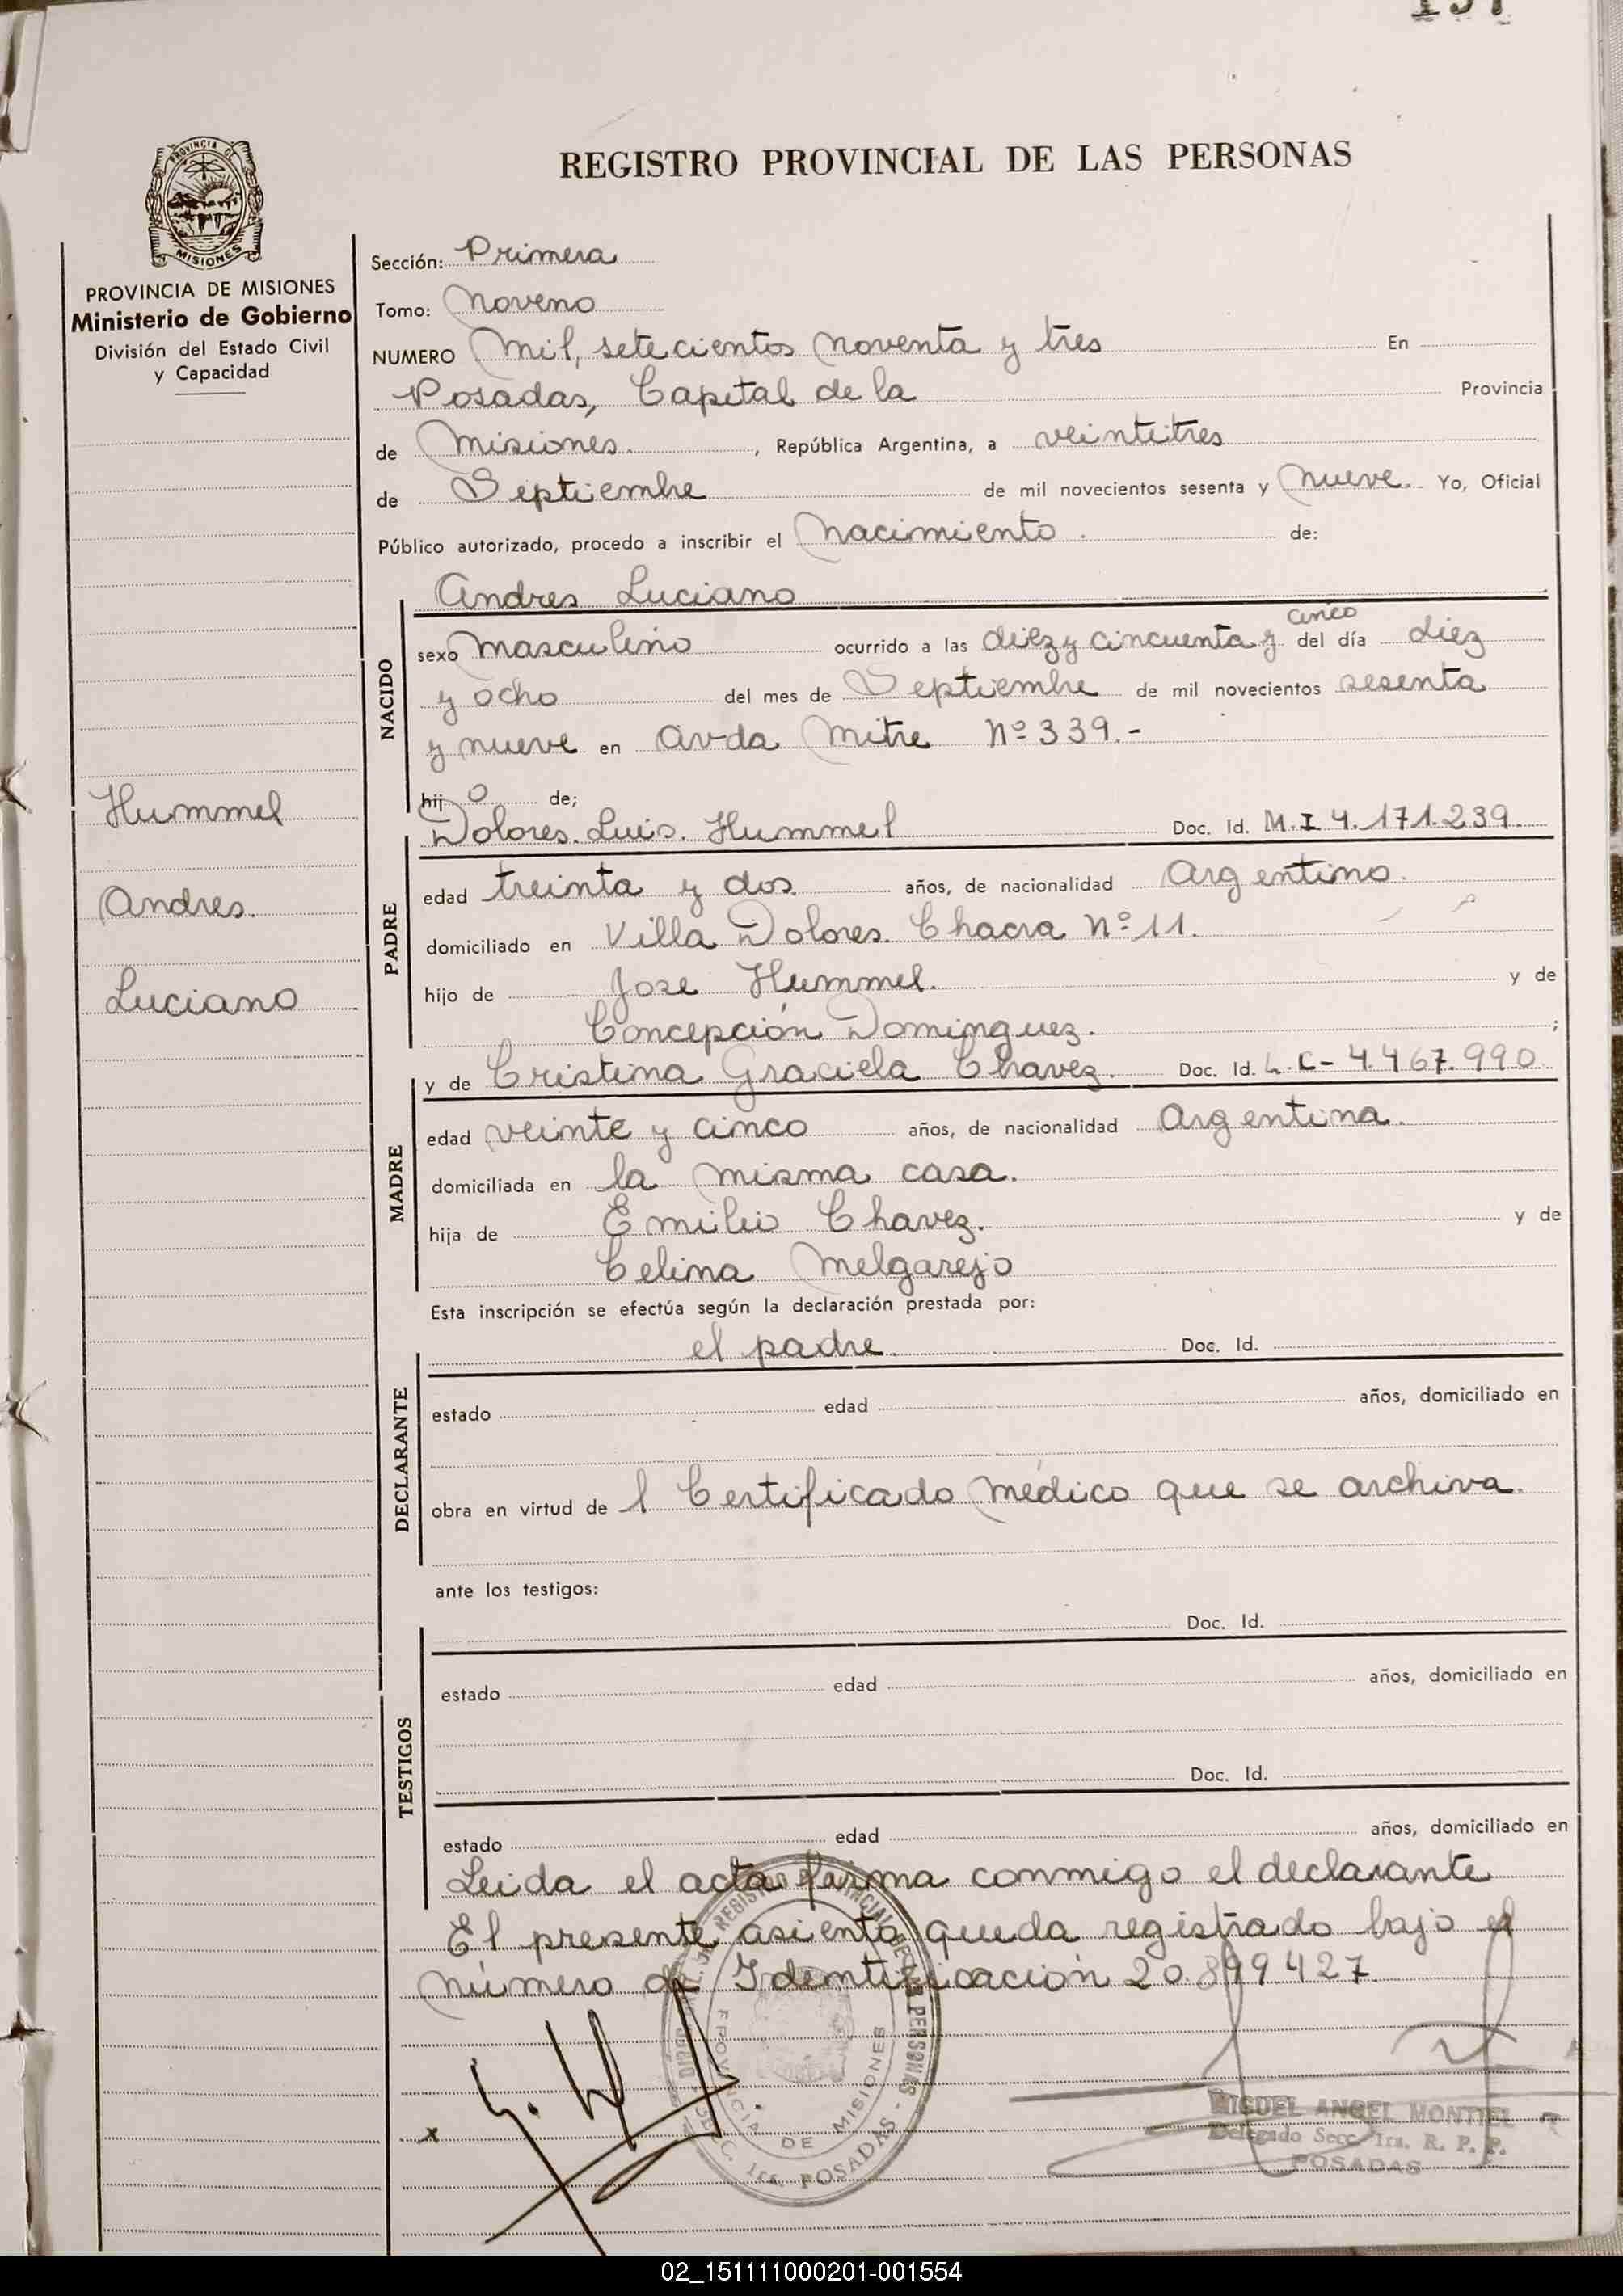 197
PROVINCIA DE
MISIONES
PROVINCIA DE MISIONES
Ministerio de Gobierno
División del Estado Civil
y Capacidad
Hummel
Andres.
Luciano
REGISTRO PROVINCIAL DE LAS PERSONAS
Sección: Primera
Tomo: Noveno
NUMERO Mil, setecientos noventa y tres En
Posadas, Capital de la Provincia
de Misiones. , República Argentina, a veintitres
de Septiembre de mil novecientos sesenta y nueve. Yo, Oficial
Público autorizado, procedo a inscribir el Nacimiento. de:
NACIDO
Andres Luciano
cinco
sexo Masculino ocurrido a las diez y cincuenta y del día diez
y ocho del mes de Septiembre de mil novecientos sesenta
y nueve en Avda Mitre Nº 339.-
hij o de;
PADRE
Dolores. Luis. Hummel Doc. Id. M.I 4.171.239.
edad treinta y dos. años, de nacionalidad Argentino.
domiciliado en Villa Dolores. Chacra Nº 11.
hijo de Jose Hummel. y de
Concepción Dominguez. ;
MADRE
y de Cristina Graciela Chavez. Doc. Id. L.C- 4.467.990.
edad veinte y cinco años, de nacionalidad Argentina.
domiciliada en la misma casa.
hija de Emilio Chavez. y de
Celina Melgarejo
Esta inscripción se efectúa según la declaración prestada por:
DECLARANTE
el padre. Doc. Id.
estado edad años, domiciliado en
obra en virtud de l Certificado médico que se archiva.
ante los testigos:
TESTIGOS
Doc. Id.
estado edad años, domiciliado en
Doc. Id.
estado edad años, domiciliado en
Leida el acta firma conmigo el declarante
El presente asiento queda registrado bajo el
número de Identificación 20.899427.
REGISTRO PROVINCIAL DE LAS PERSONAS
PROVINCIA DE MISIONES
SECC. 1ra. POSADAS -
MIGUEL ANGEL MONTIEL
Delegado Secc. 1ra. R. P. P.
POSADAS
02_151111000201-001554